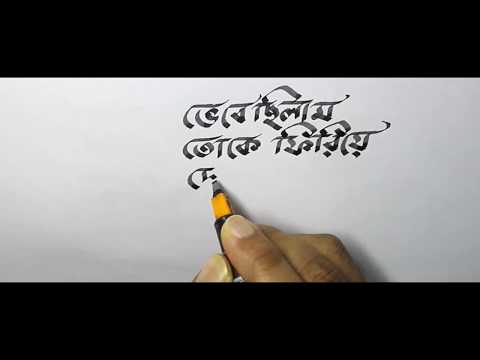 ভেবেছিলাম
তোকে ফিরিয়ে